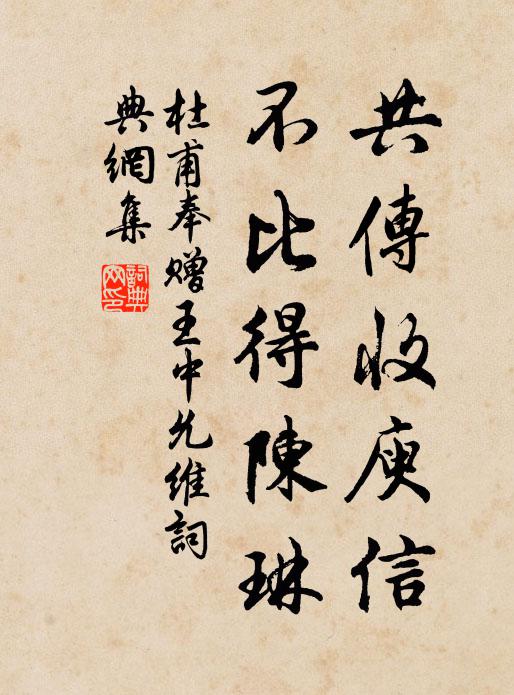 共傳收庾信
不比得陳琳
杜甫奉贈王中允維詞
典網集
詞典
网印